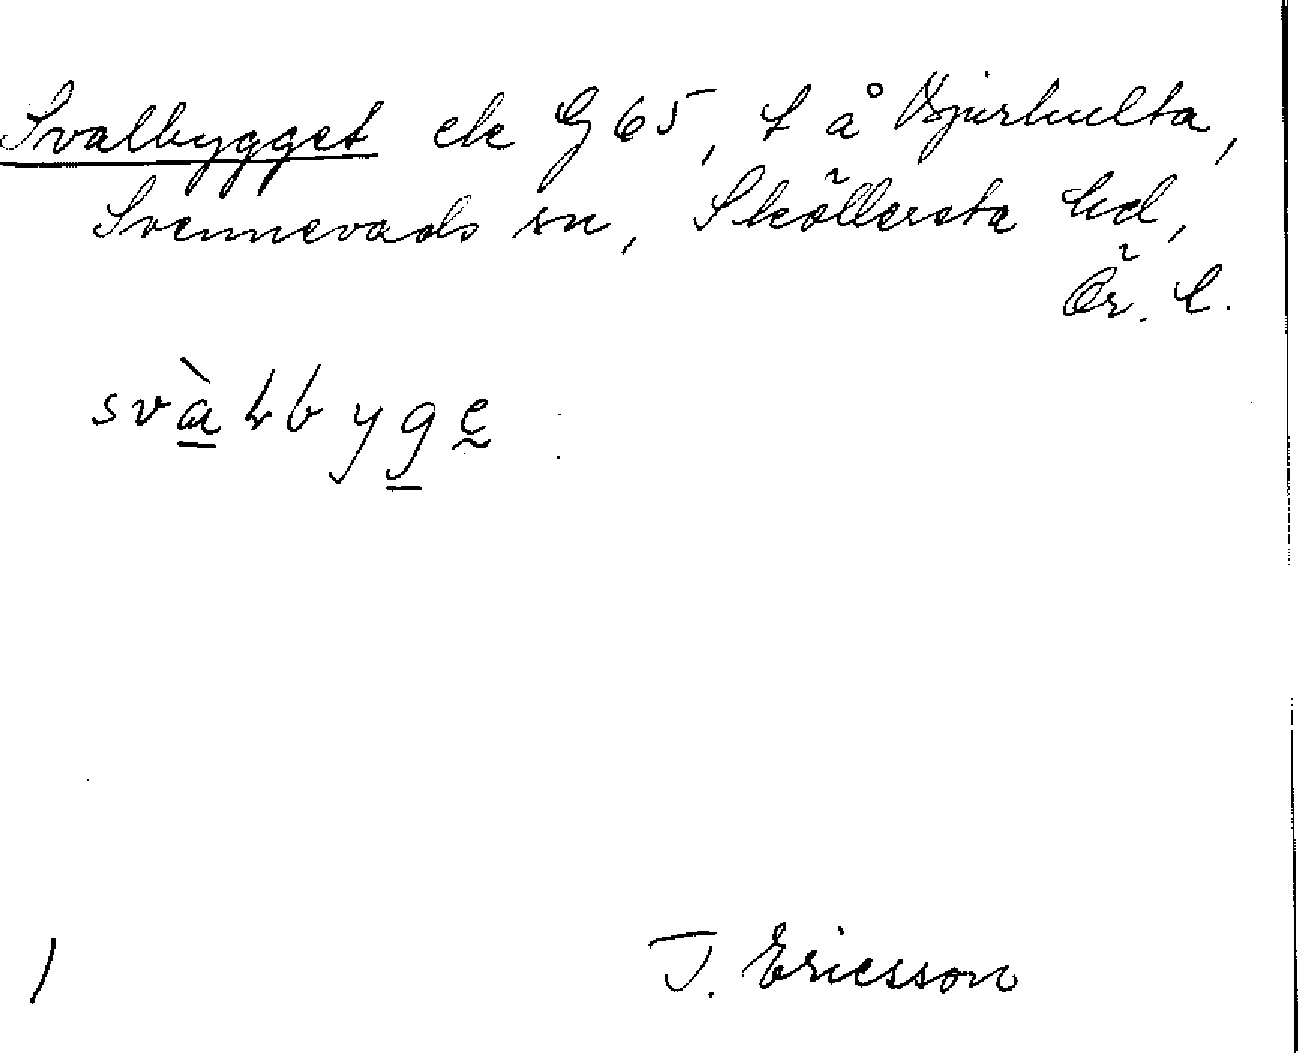 Svalbygget ek G 65, t å Bjurhulta,
Svennevads sn, Sköllersta hd,
Ör. l.
svàlbyge
J. Ericsson